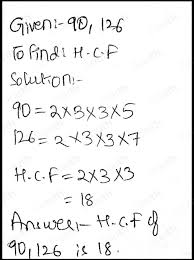 Given:- 90, 126
To Find: H.C.F
Solution:-
90 = 2×3×3×5
126 = 2×3×3×7
H.C.F = 2×3×3
= 18
Answer:- H.C.F of
90, 126 is 18.